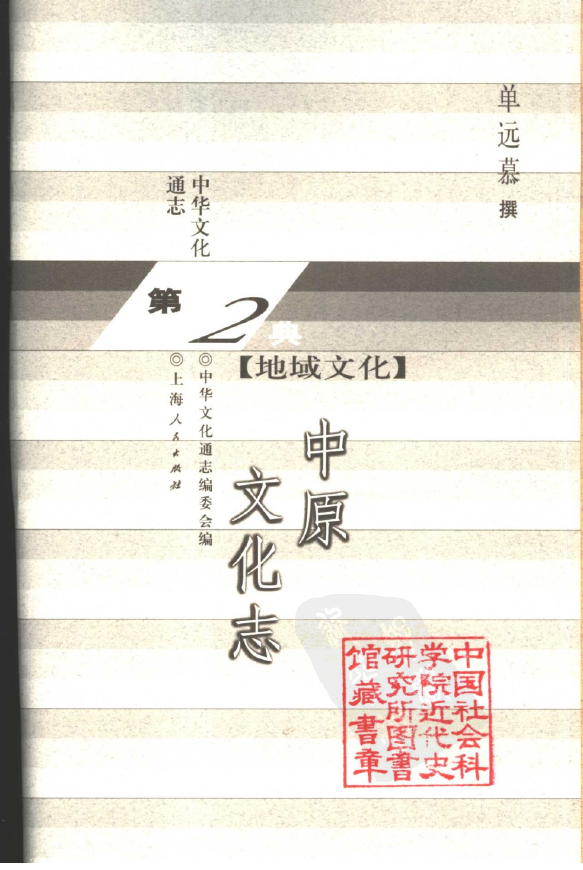 单远慕 撰
中华文化
通志
第2典
【地域文化】
中原
文化志
◎中华文化通志编委会编
◎上海人民出版社
中国社会科
学院近代史
研究所图書
馆藏書章